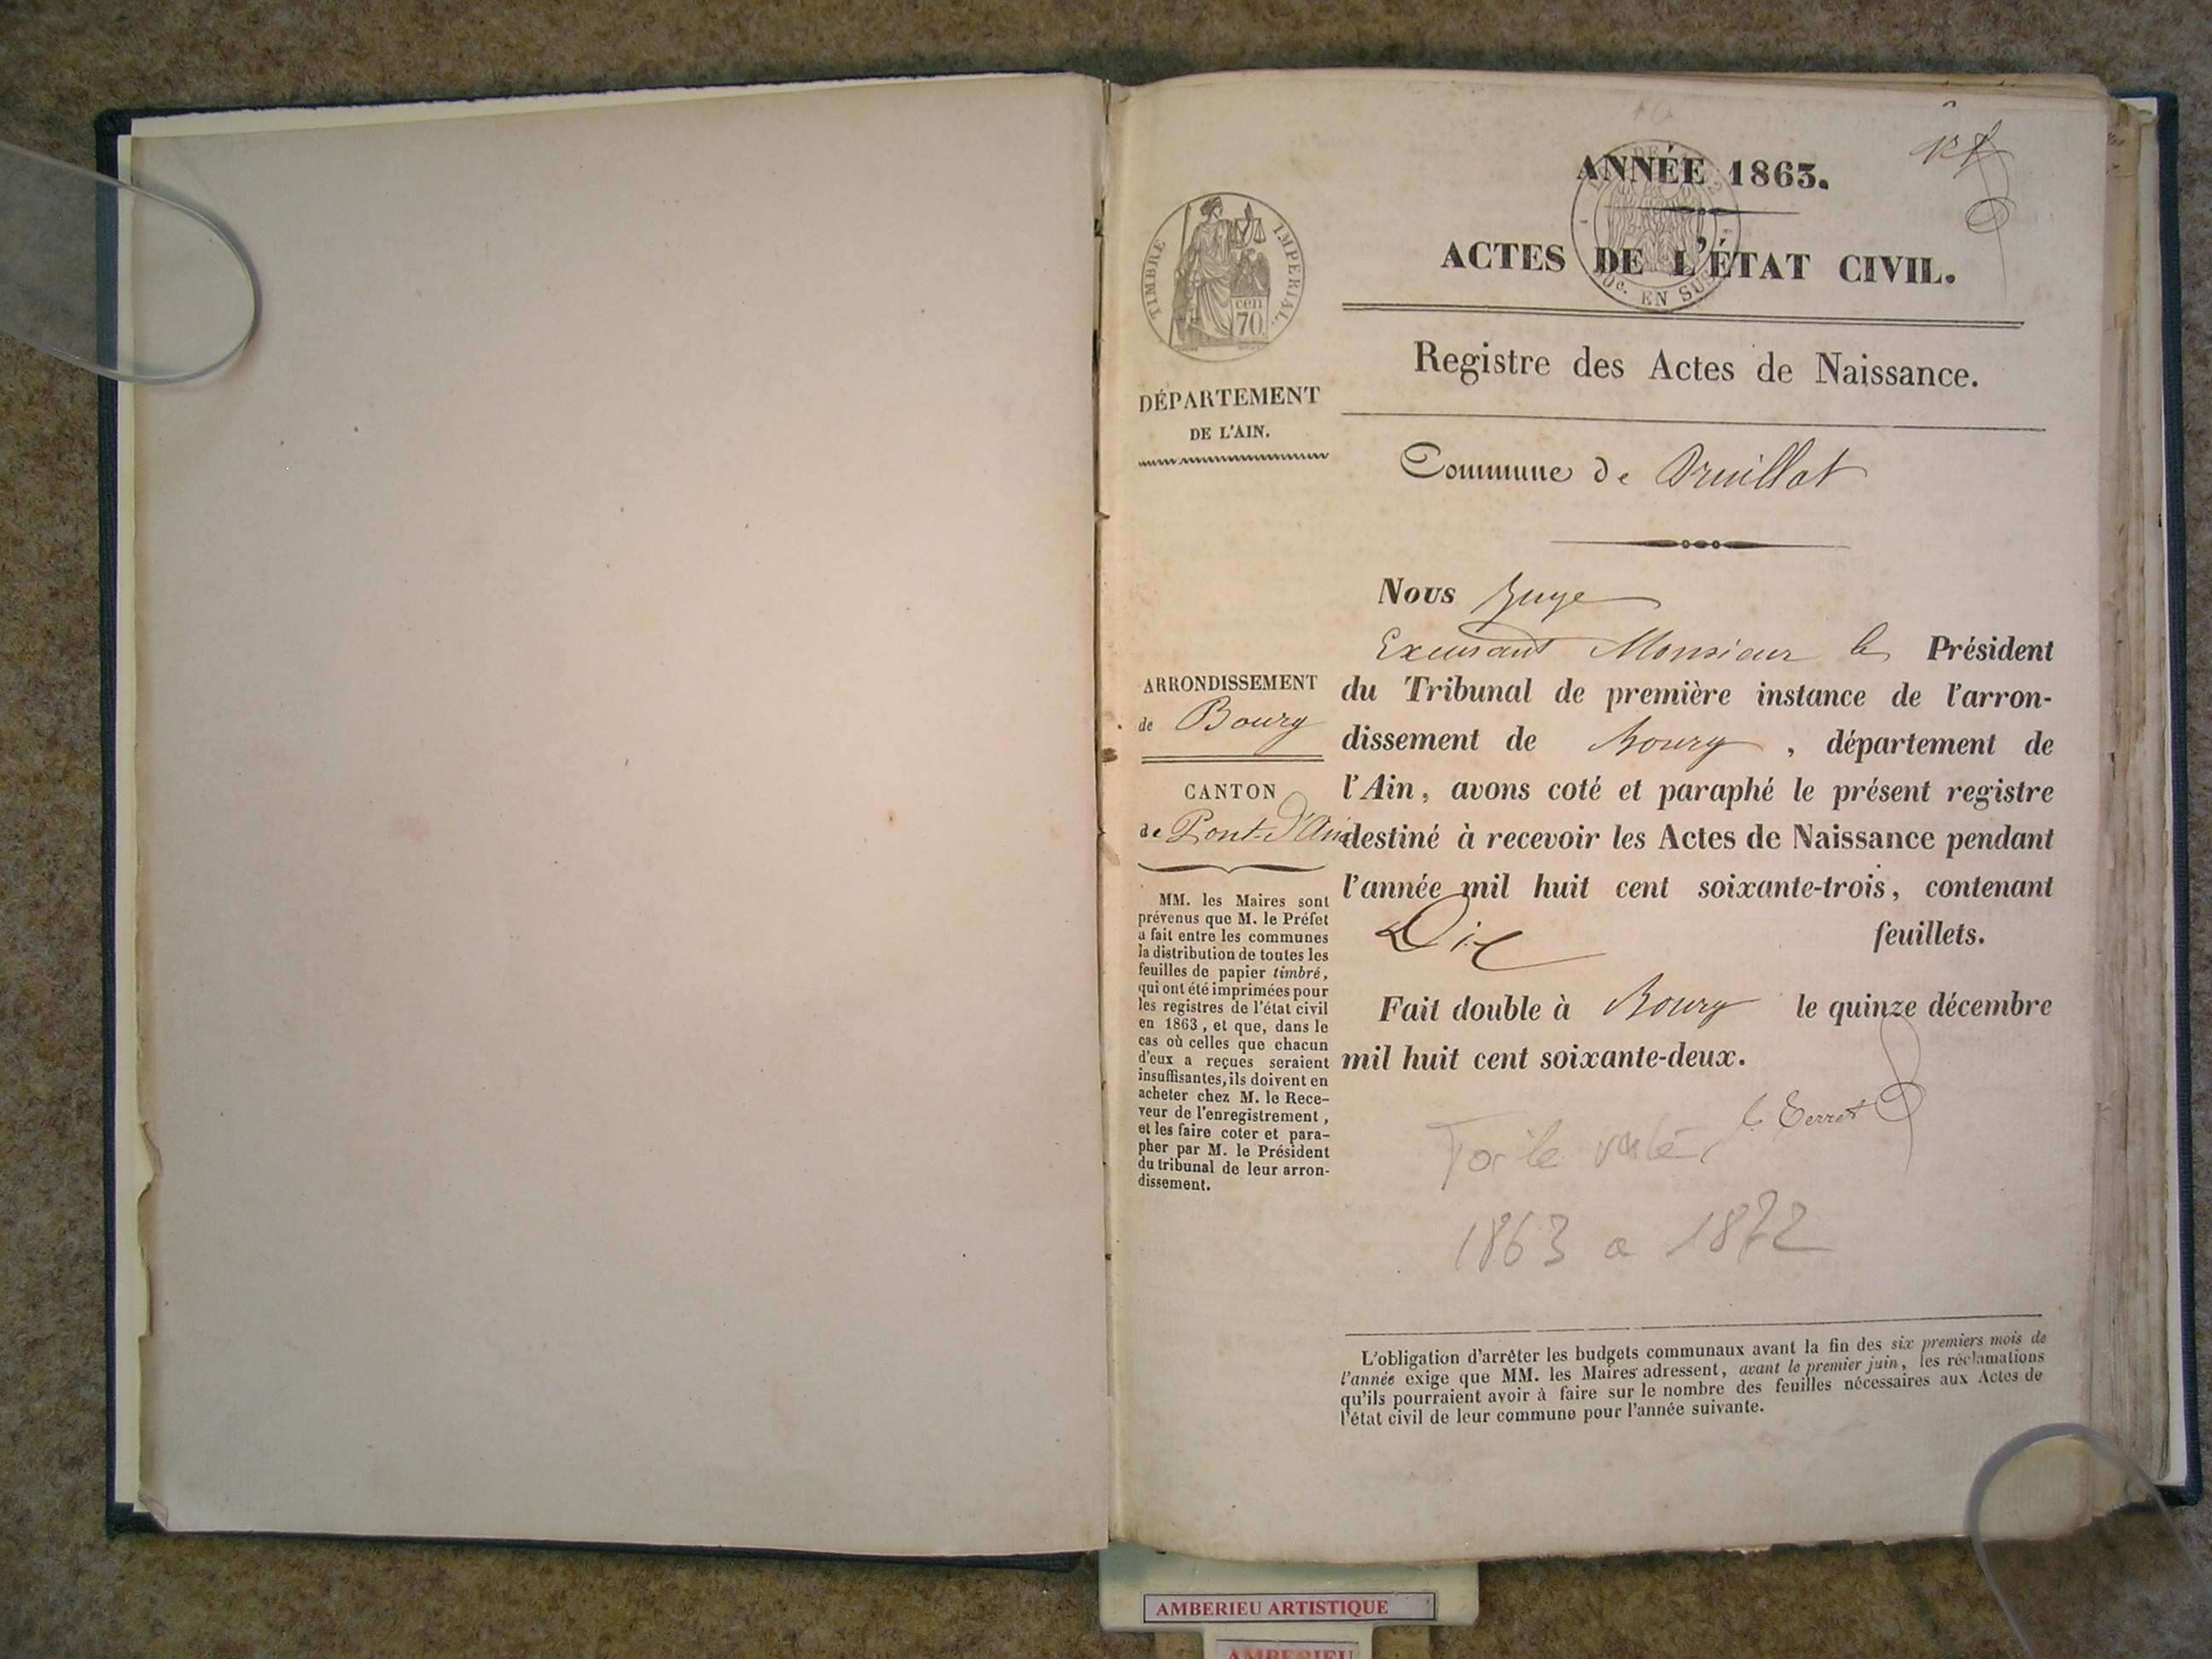 ANNÉE 1863.
ACTES DE L'ÉTAT CIVIL.
10c. EN SUS
TIMBRE IMPERIAL.
cen
70.
Registre des Actes de Naissance.
DÉPARTEMENT
DE L'AIN.
Commune de Druillat
Nous Juge
Excusant Monsieur le Président
du Tribunal de première instance de l'arron-
dissement de Bourg, département de
l'Ain, avons coté et paraphé le présent registre
destiné à recevoir les Actes de Naissance pendant
l'année mil huit cent soixante-trois, contenant
Dix feuillets.
Fait double à Bourg le quinze décembre
mil huit cent soixante-deux.
ARRONDISSEMENT
de Bourg
CANTON
de Pont-d'Ain
MM. les Maires sont
prévenus que M. le Préfet
a fait entre les communes
la distribution de toutes les
feuilles de papier timbré,
qui ont été imprimées pour
les registres de l'état civil
en 1863, et que, dans le
cas où celles que chacun
d'eux a reçues seraient
insuffisantes, ils doivent en
acheter chez M. le Rece-
veur de l'enregistrement,
et les faire coter et para-
pher par M. le Président
du tribunal de leur arron-
dissement.
1863 a 1872
L'obligation d'arrêter les budgets communaux avant la fin des six premiers mois de
l'année exige que MM. les Maires adressent, avant le premier juin, les réclamations
qu'ils pourraient avoir à faire sur le nombre des feuilles nécessaires aux Actes de
l'état civil de leur commune pour l'année suivante.
AMBERIEU ARTISTIQUE
AMBERIEU